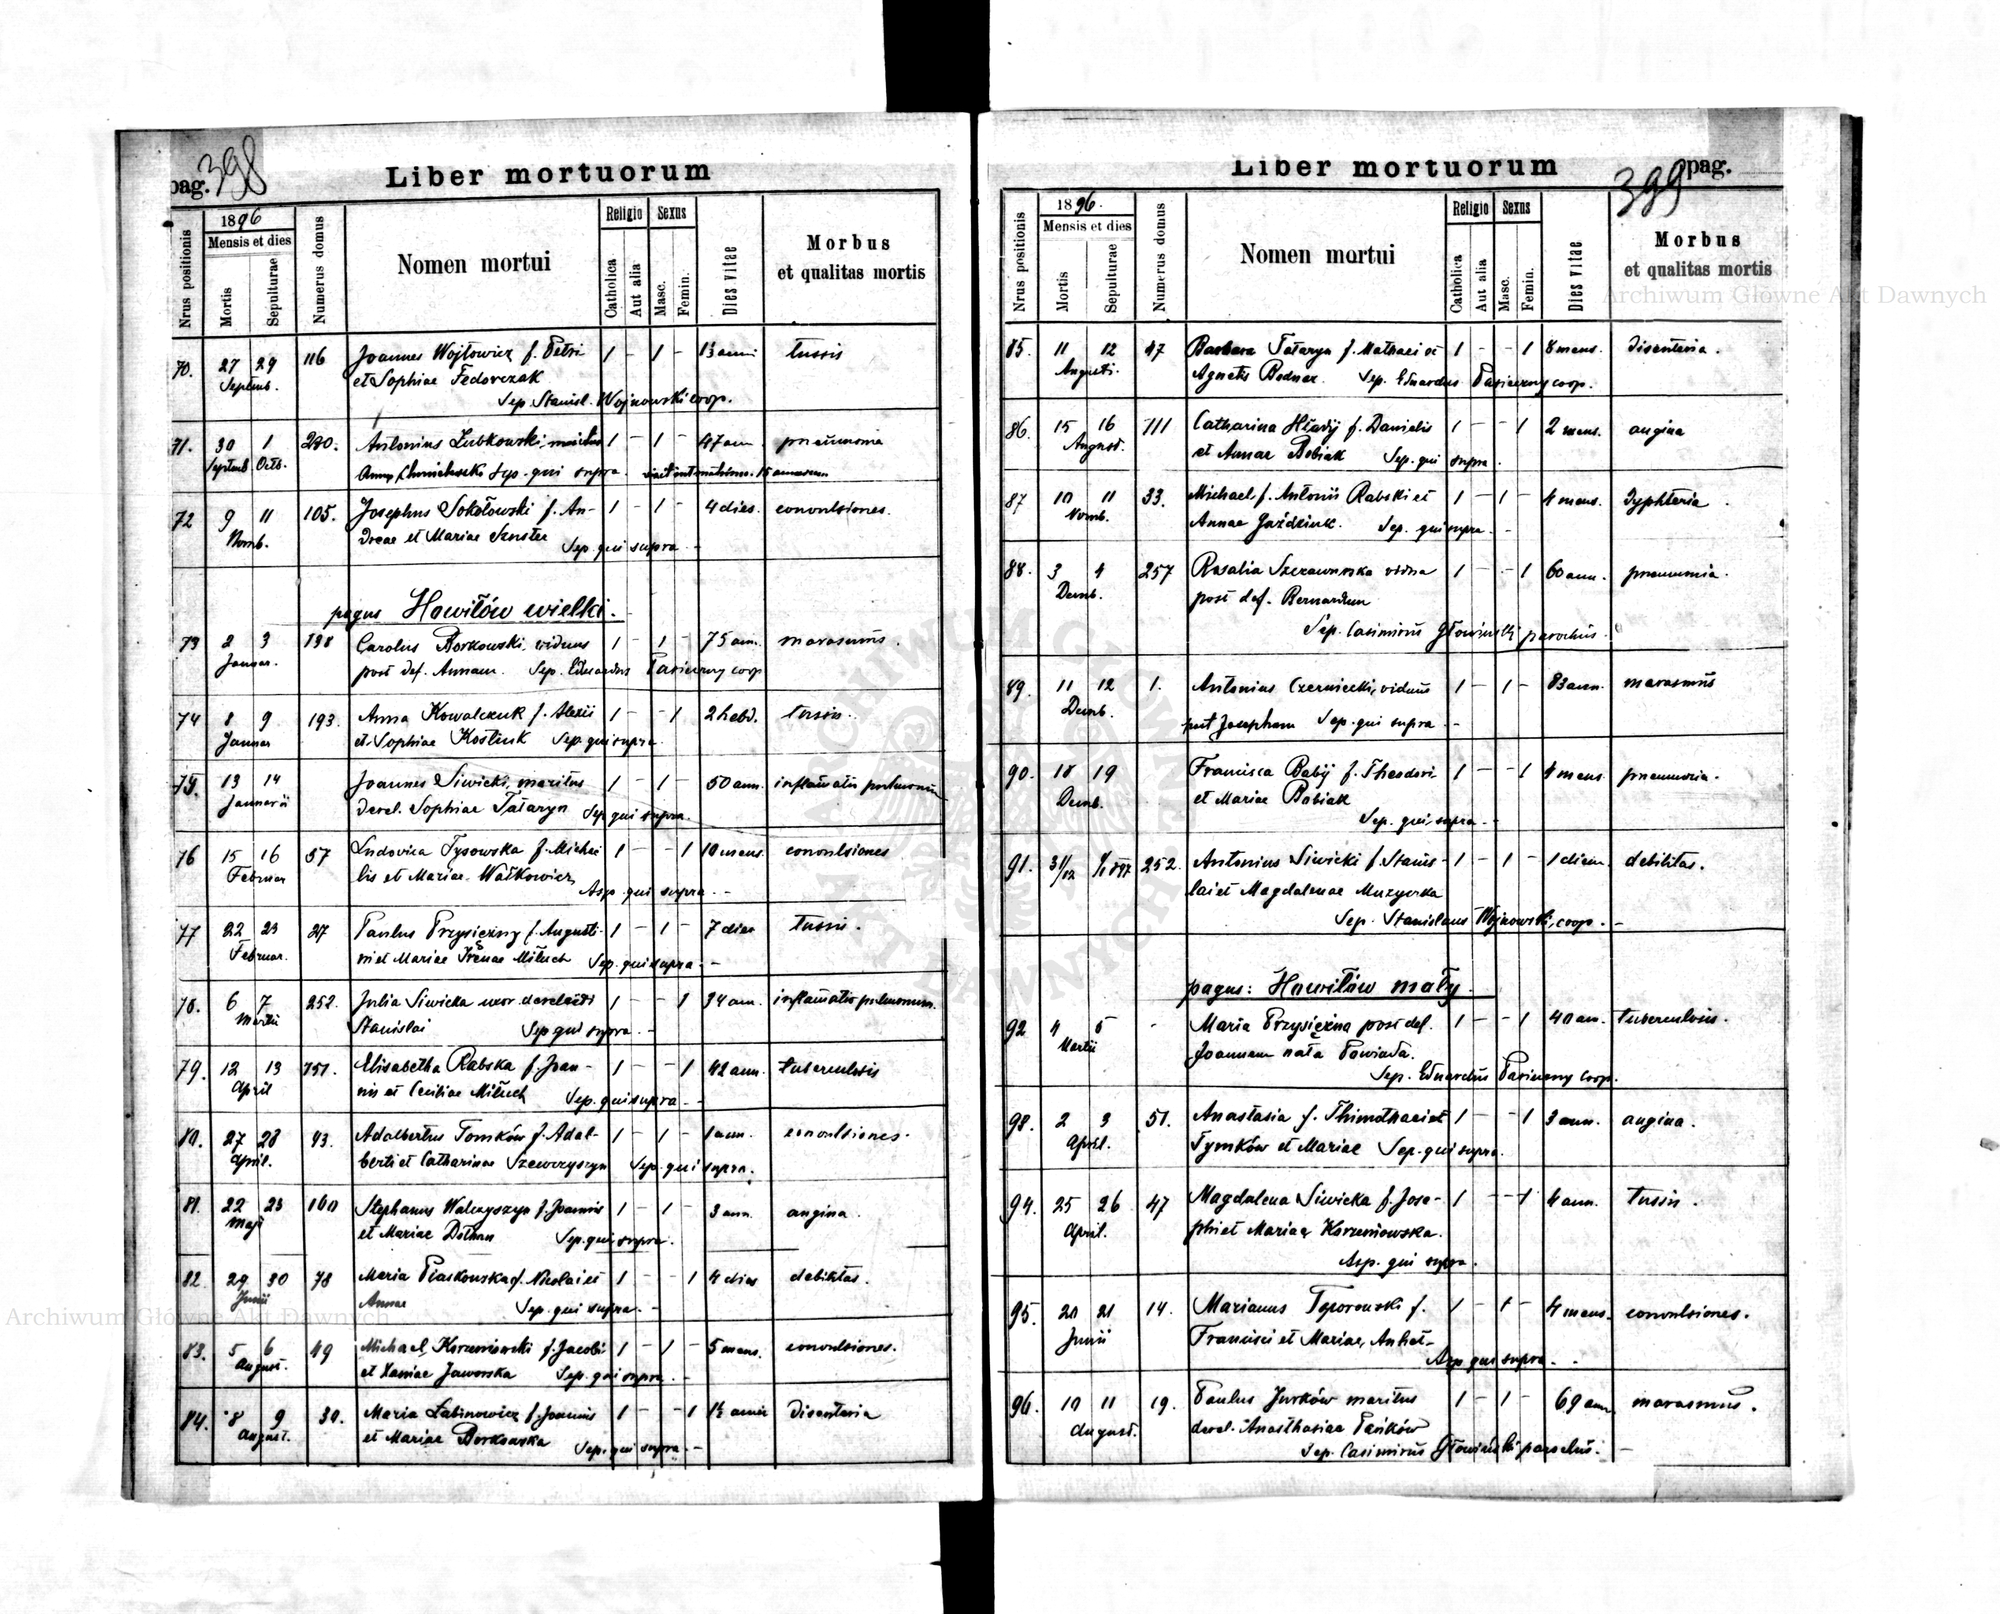 pag. 398
Liber mortuorum
Nrus positionis
1896
Mensis et dies
Mortis
Sepulturae
Numerus domus
Nomen mortui
Religio
Catholica
Aut alia
Sexus
Masc.
Femin.
Dies vitae
Morbus
et qualitas mortis
70. 27 29 116 Joannes Wojtowicz f. Petri 1 - 1 - 1½ anni tussis
Septemb. et Sophiae Fedorczak
Sep. Stanisl. Wojnowski coop.
71. 30 1 280. Antonius Łubkowski, maritus 1 - 1 - 47 ann. pneumonia
Septemb. Octb. Sep. qui supra
72 9 11 105. Josephus Sokołowski f. An- 1 - 1 - 4 dies. convulsiones.
Novmb. dreae et Mariae Szuster Sep. qui supra -
pagus Howiłów wielki.
73 2 3 198 Carolus Borkowski, viduus 1 - 1 - 75 ann. marasmus.
Januar. post def. Annam. Sep. Eduardus Pasieczny coop
74 8 9 193. Anna Kowalczuk f. Alexii 1 - - 1 2 hebd. tussis.
Januar et Sophiae Kostiuk Sep. qui supra
75. 13 14 Joannes Siwicki, maritus 1 - 1 - 50 ann. inflamatio pulmonum
Januarii derel. Sophiae Tataryn Sep. qui supra.
76 15 16 57 Ludovica Tysowska f. Michae 1 - - 1 10 mens. convulsiones
Februar lis et Mariae Wałkowicz
Asp. qui supra. -
77 22 23 27 Paulus Przysiężny f. Augusti- 1 - 1 - 7 dies tussis.
Februar. ni et Mariae Irenae Miluch Sep. qui supra. -
78. 6 7 252. Julia Siwicka uxor derelicti 1 - - 1 34 ann. inflamatio pulmonum.
Martii Stanislai Sep. qui supra. -
79. 12 13 151. Elisabetha Rabska f. Joan- 1 - - 1 42 ann. tuberculosis
April nis et Ceciliae Miluch Sep. qui supra - -
80. 27 28 43. Adalbertus Tomków f. Adal- 1 - 1 - 1 ann. convulsiones.
April. berti et Catharinae Szewczyszyn Sep. qui supra.
81. 22 23 160 Stephanus Walczyszyn f. Joannis 1 - 1 - 3 ann. angina.
Maji et Mariae Sep. qui supra.
82. 29 30 78 Maria Piaskowska f. Nicolai et 1 - - 1 4 dies debilitas.
Junii Annae Sep. qui supra. -
83. 5 6 49 Michael Korzeniowski f. Jacobi 1 - 1 - 5 mens. convulsiones.
August. et Xaniae Jaworska Sep. qui supra. -
84. 8 9 30. Maria Łabinowicz f. Joannis 1 - - 1 1½ anni Disenteria
August. et Mariae Borkowska Sep. qui supra. -
Liber mortuorum
399 pag.
Nrus positionis
1896.
Mensis et dies
Mortis
Sepulturae
Numerus domus
Nomen mortui
Religio
Catholica
Aut alia
Sexus
Masc.
Femin.
Dies vitae
Morbus
et qualitas mortis
85. 11 12 47 Barbara Tataryn f. Mathaei et 1 - - 1 8 mens. Disenteria.
Augusti. Agnetis Bednar. Sep. Eduardus Pasieczny coop.
86. 15 16 111 Catharina Hładij f. Danielis 1 - - 1 2 mens. angina
August. et Annae Bobiak Sep. qui supra.
87 10 11 33. Michael f. Antonii Rabski et 1 - 1 - 4 mens. Dyphteria
Novmb. Annae Gaździuk. Sep. qui supra. -
88. 3 4 257 Rosalia Szczawińska vidua 1 - - 1 60 ann. pneumonia.
Decmb. post def. Bernardum
Sep. Casimirus Głowiński parochus.
89. 11 12 1. Antonius Czerniecki, viduus 1 - 1 - 83 ann. marasmus
Decmb. post Josepham Sep. qui supra. -
90. 18 19 Francisca Babij f. Theodori 1 - - 1 4 mens. pneumonia.
Decmb. et Mariae Bobiak
Sep. qui supra. -
91. 31/12 1/1 897 252. Antonius Siwicki f. Stanis- 1 - 1 - 1 diem. debilitas.
lai et Magdalenae Muzyczka
Sep. Stanislaus Wojnowski, coop. -
pagus: Howiłów mały.
92 4 5 - Maria Przysiężna post def. 1 - - 1 40 an. tuberculosis.
Martii Joannem nata Powiada.
Sep. Eduardus Pasieczny coop.
93. 2 3 51. Anastasia f. Thimothaei et 1 - - 1 3 ann. angina.
April. Tymków et Mariae Sep. qui supra.
94. 25 26 47 Magdalena Siwicka f. Jose- 1 - - 1 4 ann. tussis.
April. phi et Mariae Korzeniowska.
Asp. qui supra.
95. 20 21 14. Marianus Toporowski f. 1 - 1 - 4 mens. convulsiones.
Junii Francisci et Mariae,
Asp. qui supra. -
96. 10 11 19. Paulus Jurków maritus 1 - 1 - 69 ann. marasmus.
August. derel. Anasthasiae Pańków
Sep. Casimirus Głowiński parochus. -
Archiwum Główne Akt Dawnych
Archiwum Główne Akt Dawnych
ARCHIWUM GŁÓWNE AKT DAWNYCH